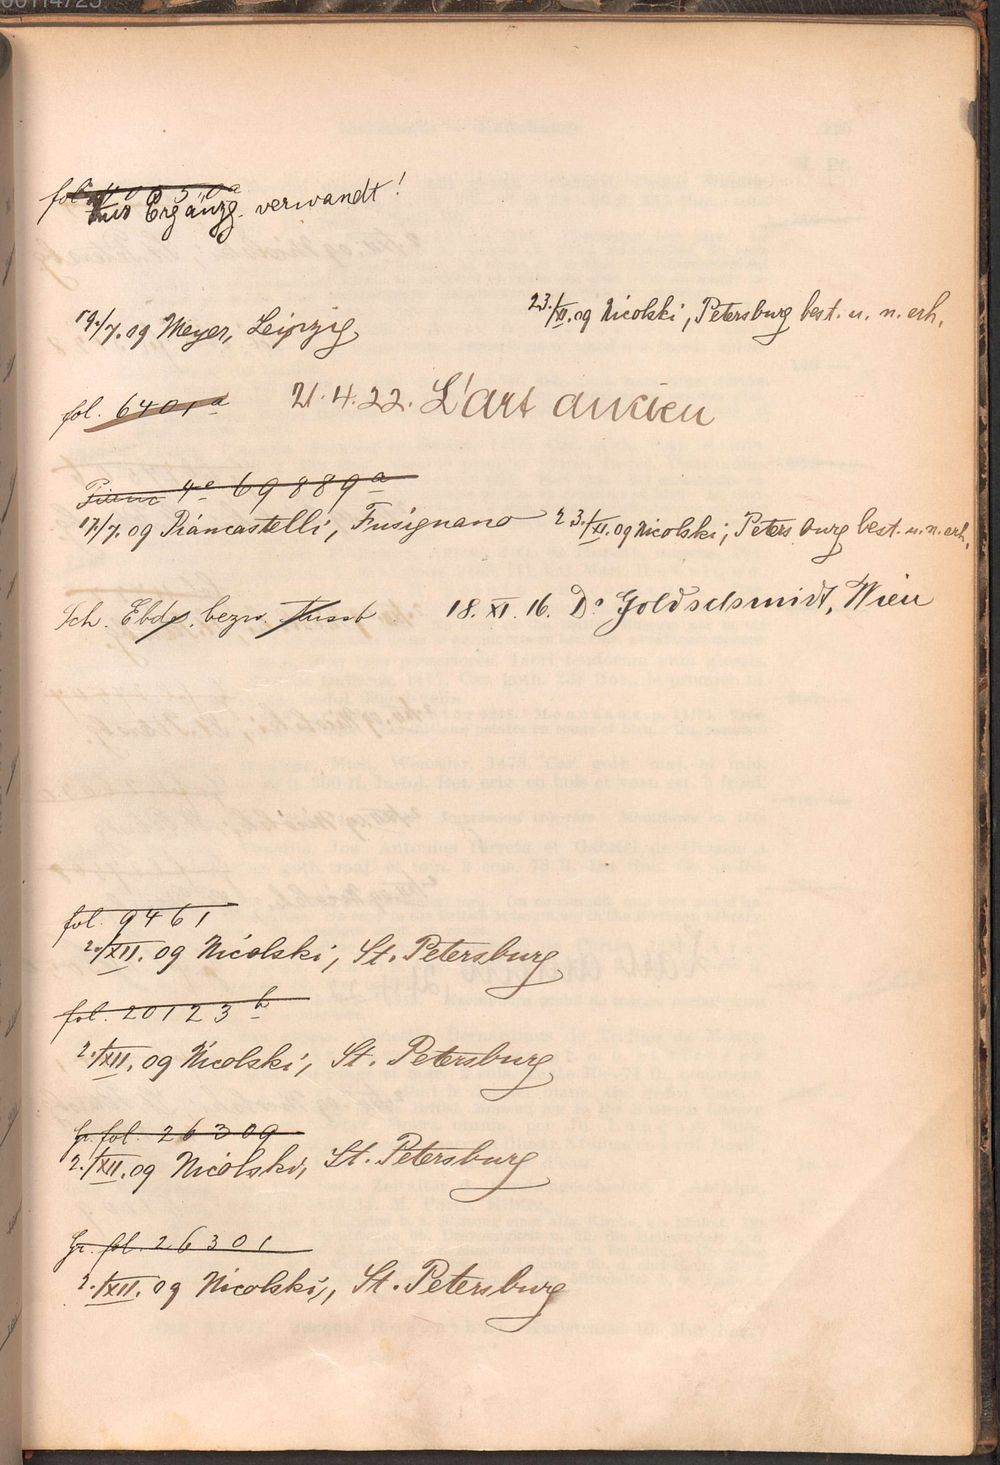 fol. 40850a
Zur Ergänzg. verwandt!
19./7. 09 Meyer, Leipzig
23./XI. 09 Nicolski, Petersburg best. u. n. erh.
fol. 6401a 21.4.22. L'art ancien
4° 69889a
17./7. 09 Piancastelli, Fusignano 23./XI. 09 Nicolski, Petersburg best. u. n. erh.
Sch. Ebd. bezw. 18. XI. 16. Dr Goldschmidt, Wien
fol. 9461
2./XII. 09 Nicolski, St. Petersburg
fol. 20123b
2./XII. 09 Nicolski, St. Petersburg
Gr. fol. 26309
2./XII. 09 Nicolski, St. Petersburg
Gr. fol. 26301
2./XII. 09 Nicolski, St. Petersburg